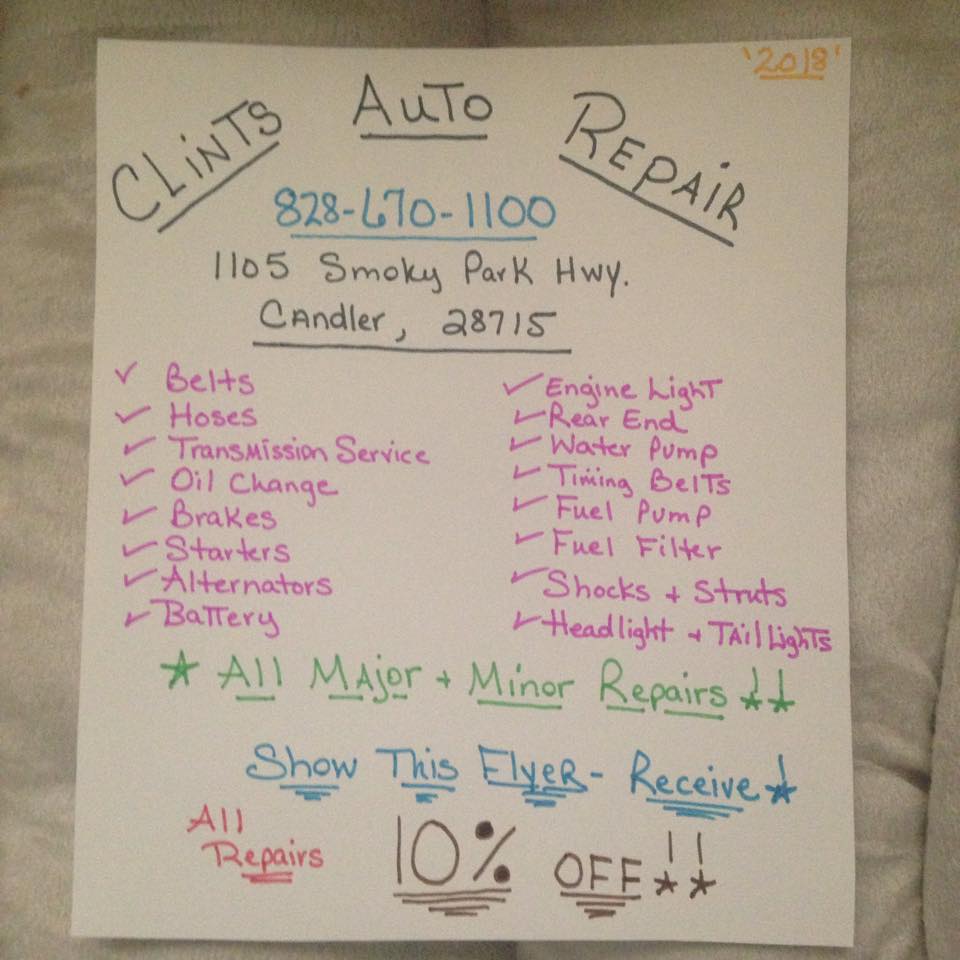 '2018'
CLiNTS AuTO REPAiR
828-670-1100
1105 Smoky Park Hwy.
Candler, 28715
✓ Belts
✓ Hoses
✓ Transmission Service
✓ Oil Change
✓ Brakes
✓ Starters
✓ Alternators
✓ Battery
✓ Engine Light
✓ Rear End
✓ Water Pump
✓ Timing Belts
✓ Fuel Pump
✓ Fuel Filter
✓ Shocks + Struts
✓ Headlight + Tail Lights
★ All Major + Minor Repairs !!
Show This Flyer - Receive!
All Repairs 10% OFF!!